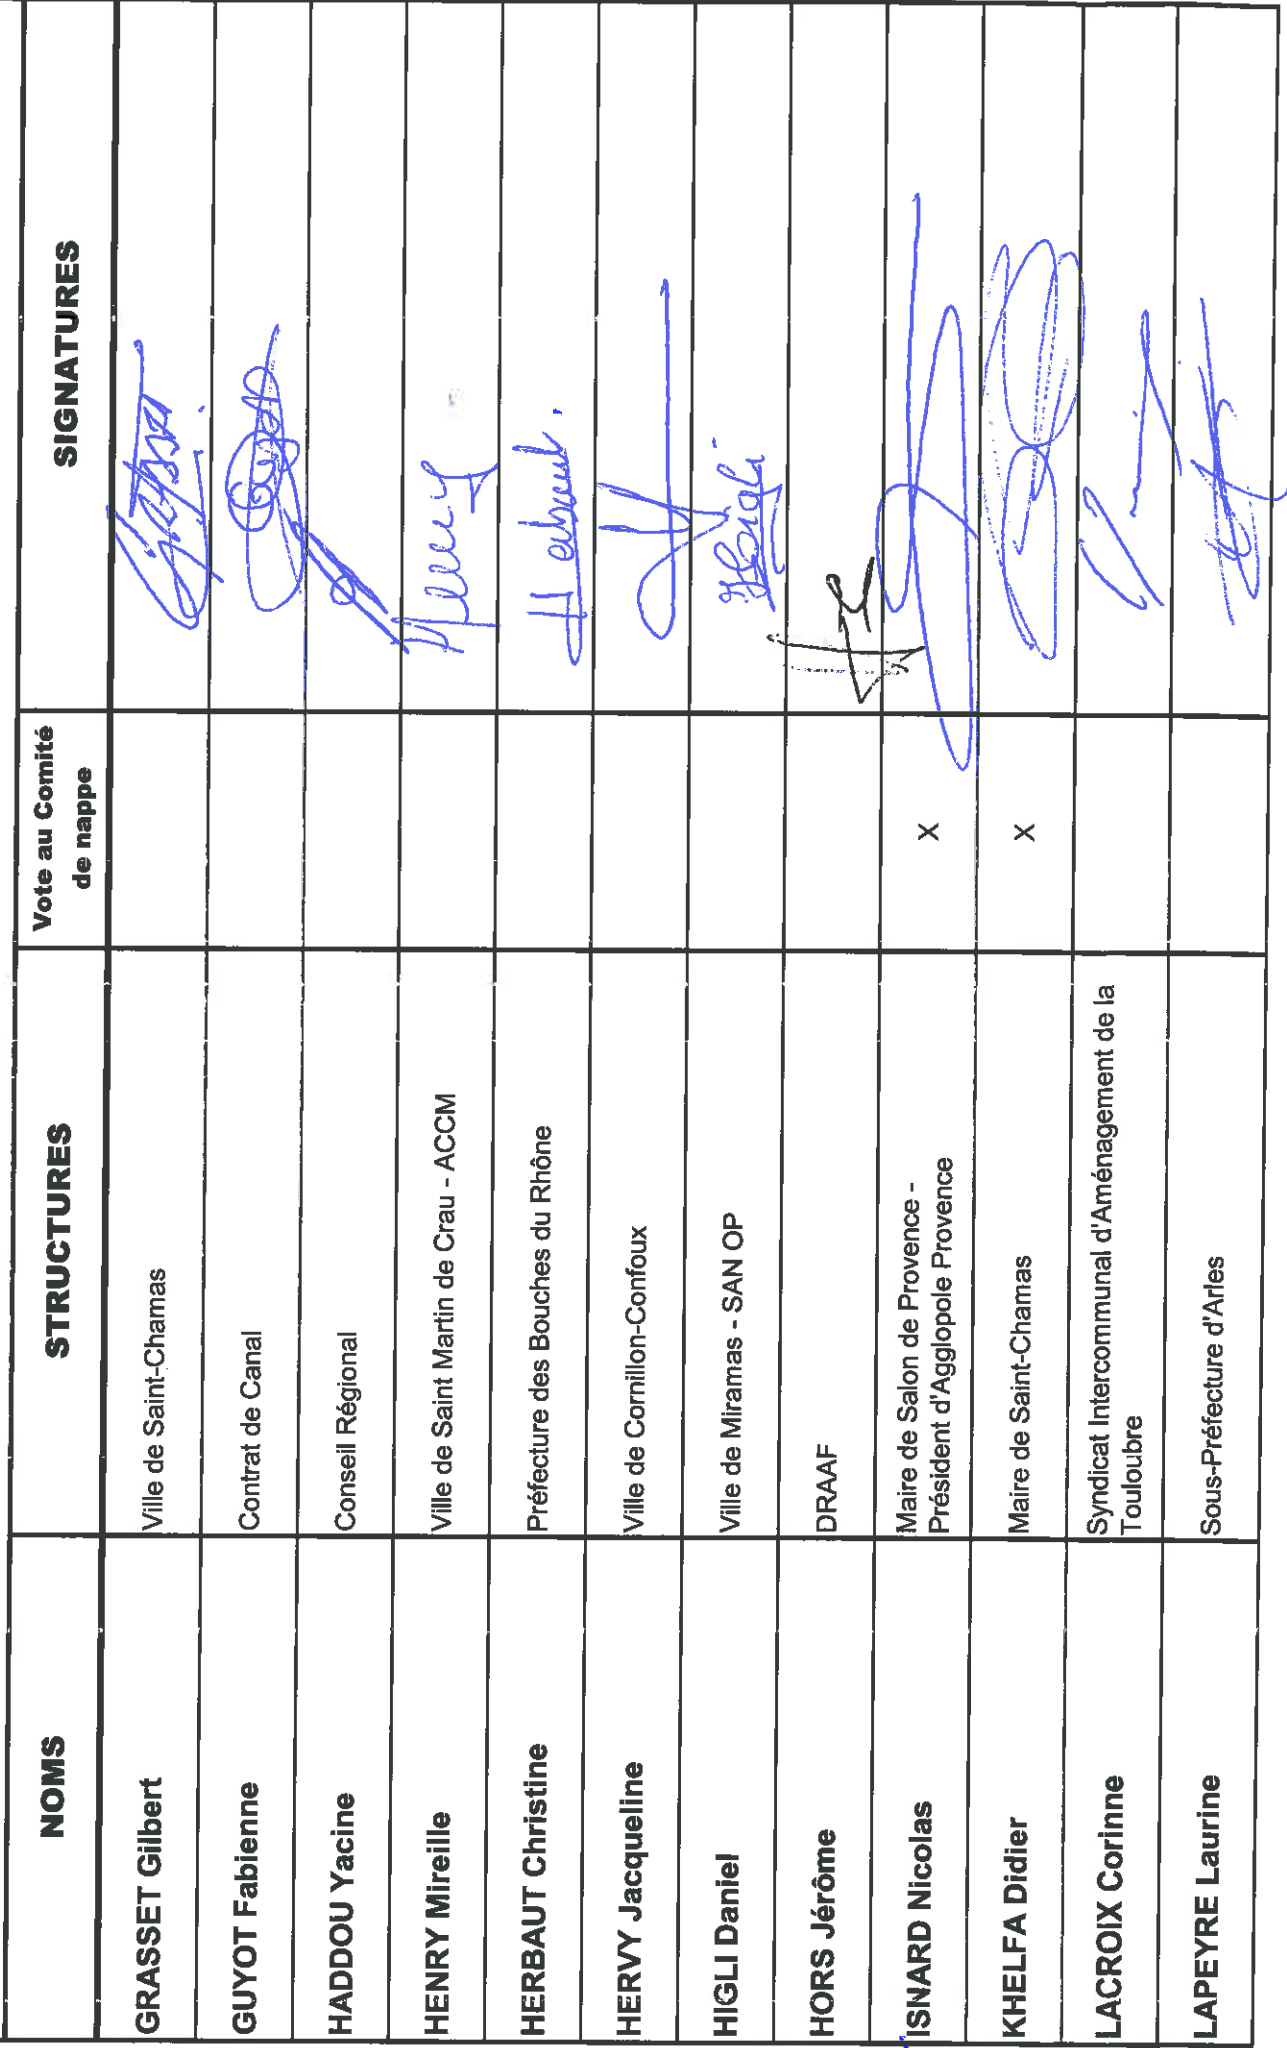 NOMS STRUCTURES Vote au Comité de nappe SIGNATURES
GRASSET Gilbert Ville de Saint-Chamas
GUYOT Fabienne Contrat de Canal
HADDOU Yacine Conseil Régional
HENRY Mireille Ville de Saint Martin de Crau - ACCM
HERBAUT Christine Préfecture des Bouches du Rhône
HERVY Jacqueline Ville de Cornillon-Confoux
HIGLI Daniel Ville de Miramas - SAN OP
HORS Jérôme DRAAF
ISNARD Nicolas Maire de Salon de Provence -
Président d'Agglopole Provence X
KHELFA Didier Maire de Saint-Chamas X
LACROIX Corinne Syndicat Intercommunal d'Aménagement de la
Touloubre
LAPEYRE Laurine Sous-Préfecture d'Arles